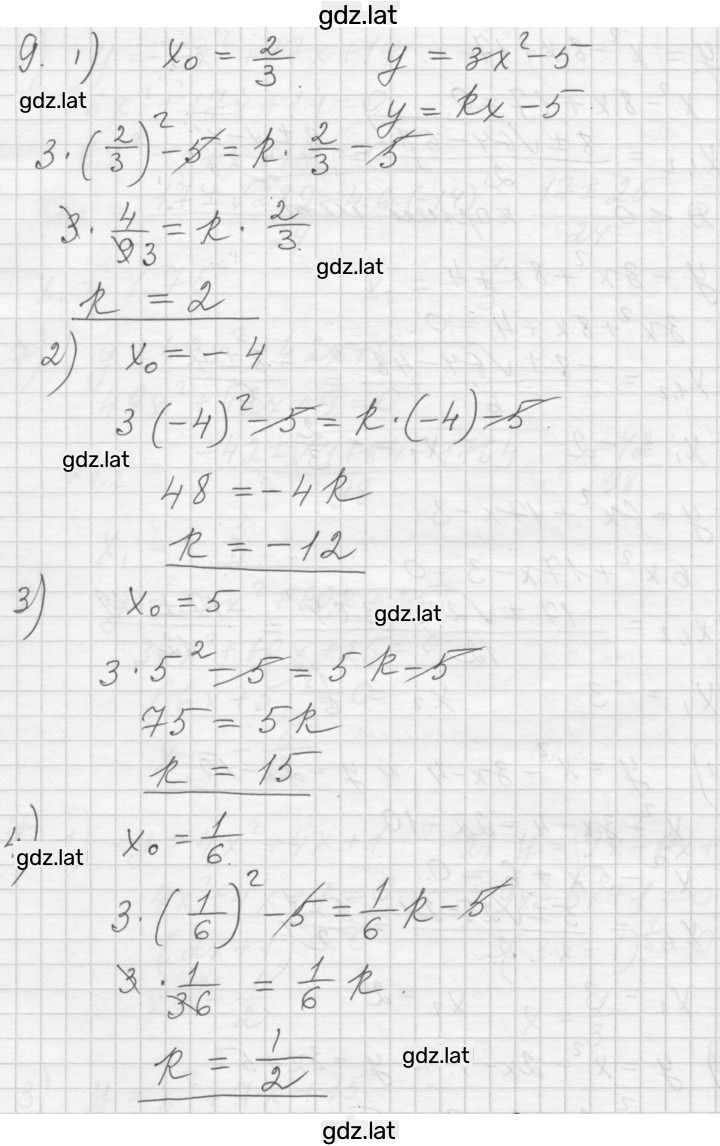 gdz.lat
9. 1) x₀ = 2/3 y = 3x² - 5
gdz.lat
y = kx - 5
3 · (2/3)² - 5 = k · 2/3 - 5
3 · 4/9 3 = k · 2/3
gdz.lat
k = 2
2) x₀ = - 4
3 (-4)² - 5 = k · (-4) - 5
gdz.lat
48 = -4k
k = -12
3) x₀ = 5
gdz.lat
3 · 5² - 5 = 5k - 5
75 = 5k
k = 15
4) x₀ = 1/6
gdz.lat
3 · (1/6)² - 5 = 1/6 k - 5
3 · 1/36 = 1/6 k
k = 1/2
gdz.lat
gdz.lat